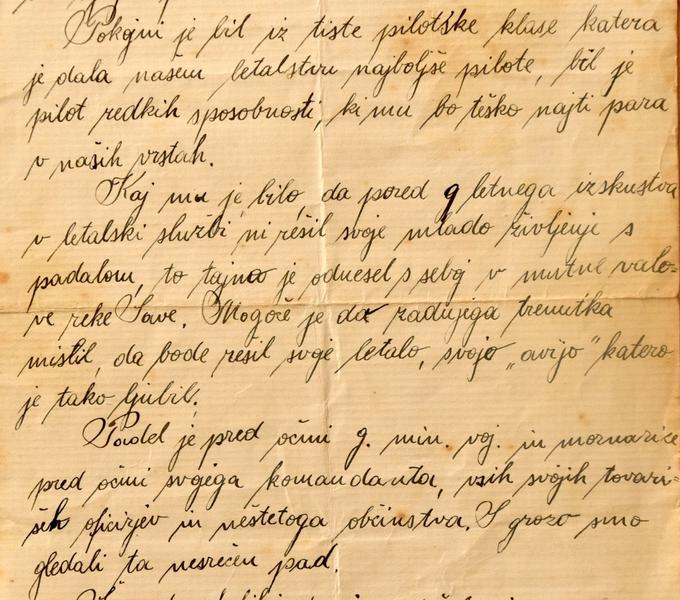 Pokojni je bil iz tiste pilotske klase katera
je dala našem letalstvu najboljše pilote, bil je
pilot redkih sposobnosti, ki mu bo teško najti para
v naših vrstah.
Kaj mu je bilo, da pored 9 letnega izskustva
v letalski službi ni rešil svoje mlado življenje s
padalom, to tajno je odnesel s seboj v mutne valo=
ve reke Save. Mogoče je da zadnjega trenutka
mislil, da bode resil svoje letalo, svojo „avijo" katero
je tako ljubil.
Padel je pred očmi g. min. voj. in mornarice
pred očmi svojega komandanta, vsih svojih tovari=
ših oficirjev in neštetoga občinstva. S grozo smo
gledali ta nesrečen pad.